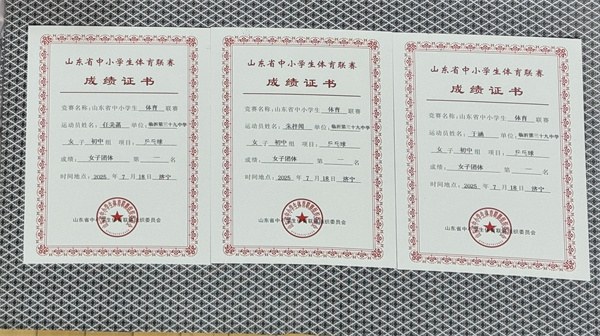 山东省中小学生体育联赛
成绩证书
竞赛名称:山东省中小学生 体育 联赛
运动员姓名: 单位:临沂第三十九中学
女 子 初中 组 项目: 乒乓球
成绩: 女子团体 第 一 名
时间地点: 2025 年 7 月 18日 济宁
山东省中小学生体育联赛组织委员会
山东省中小学生体育联赛
成绩证书
竞赛名称:山东省中小学生 体育 联赛
运动员姓名: 朱梓闻 单位:临沂第三十九中学
女 子 初中 组 项目: 乒乓球
成绩: 女子团体 第 一 名
时间地点: 2025 年 7 月 18日 济宁
山东省中小学生体育联赛组织委员会
山东省中小学生体育联赛
成绩证书
竞赛名称:山东省中小学生 体育 联赛
运动员姓名: 丁涵 单位:临沂第三十九中学
女 子 初中 组 项目: 乒乓球
成绩: 女子团体 第 一 名
时间地点: 2025 年 7 月 18日 济宁
山东省中小学生体育联赛组织委员会